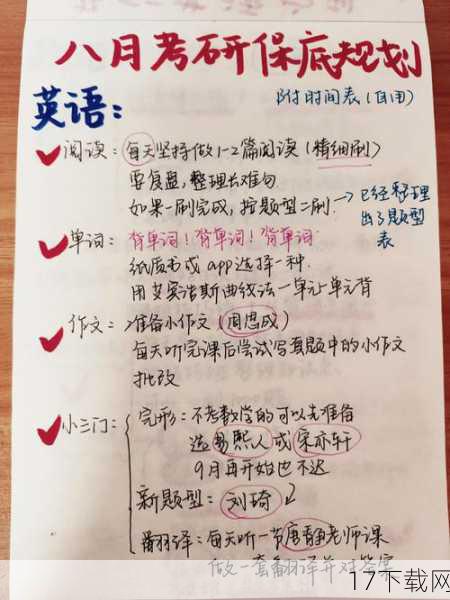 八月考研保底规划
英语：
附时间表（自用）
阅读：每天坚持做1-2篇阅读（精细刷）
要复盘，整理长难句
如果一刷完成，按题型二刷 → 已经整理出了题型表
单词：背单词！背单词！背单词
纸质书或app选择一种
用艾宾浩斯曲线法一单元一单元背
作文：准备小作文（周思成）
每天听完课后尝试写真题中的小作文
批改
小三门：
完形：不考数学的可以先准备
选易熙人或宋亦轩
9月再开始也不迟
新题型：刘琦
翻译：每天听一节唐静老师课
做一套翻译并对答案
17下载网